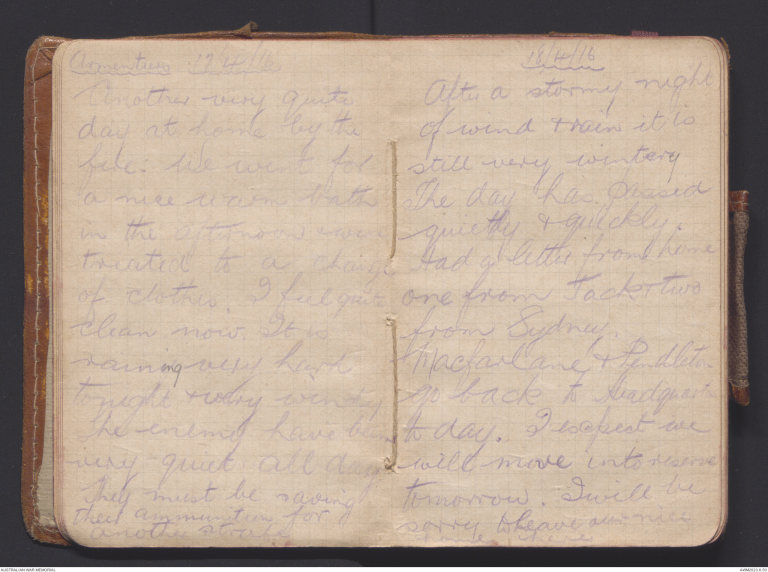 Armentiers 17/4/16
Another very quite
day at home by the
fire: We went for
a nice warm bath
in the afternoon & were
treated to a change
of clothes. I feel quite
clean now. It is
raining very hard
tonight & very windy
The enemy have been
very quiet all day
They must be saving
their ammunition for
another strafe
18/4/16
After a stormy night
of wind & rain it is
still very wintery
The day has passed
quietly & quickly.
Had a letter from home
one from Jack & two
from Sydney.
Macfarlane & Pendleton
go back to Headquarters
to day. I expect we
will move into reserve
tomorrow. I will be
sorry to leave our nice
home here
AUSTRALIAN WAR MEMORIAL